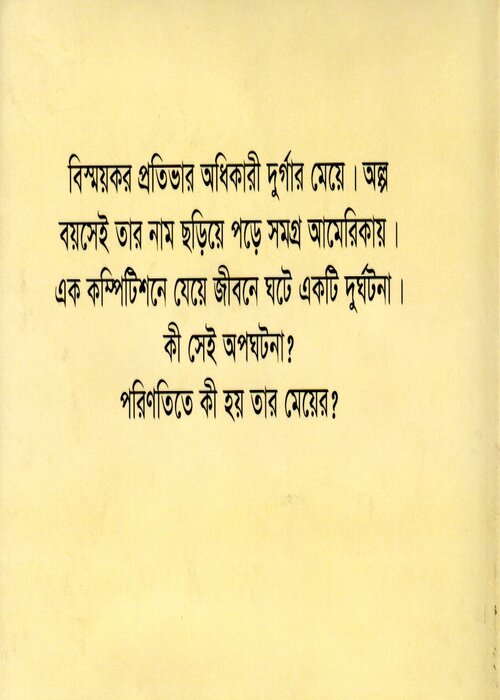 বিস্ময়কর প্রতিভার অধিকারী দুর্গার মেয়ে। অল্প
বয়সেই তার নাম ছড়িয়ে পড়ে সমগ্র আমেরিকায়।
এক কম্পিটিশনে যেয়ে জীবনে ঘটে একটি দুর্ঘটনা।
কী সেই অপঘটনা?
পরিণতিতে কী হয় তার মেয়ের?